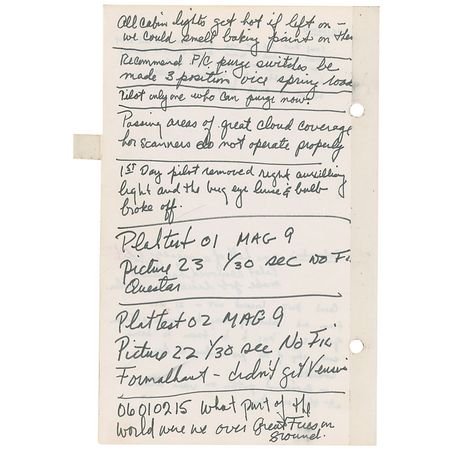 All cabin lights get hot if left on -
we could smell baking paint on them
Recommend F/C purge switches be
made 3 position vice spring load
Pilot only one who can purge now.
Passing areas of great cloud coverage
hor scanners did not operate properly
1st Day pilot removed right auxilliary
light and the bug eye lense & bulb
broke off.
Plattest 01 MAG 9
Picture 23 1/30 sec No Fil
Questar
Plattest 02 MAG 9
Picture 22 1/30 sec No Fil
Formalhaut - didn't get
06010215 what part of the
world were we over Great Fires on
Ground.